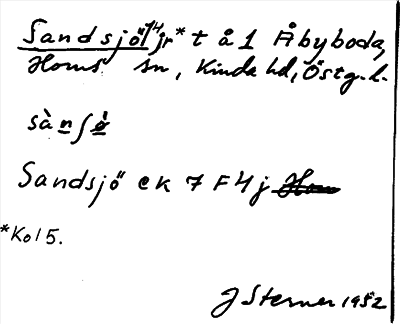 Sandsjö 14/jr* t å 1 Åbyboda,
Horns sn, Kinda hd, Östg.l.
sàn∫ö̀
Sandsjö ek 7 F 4 j
*Kol 5.
J Sterner 1952